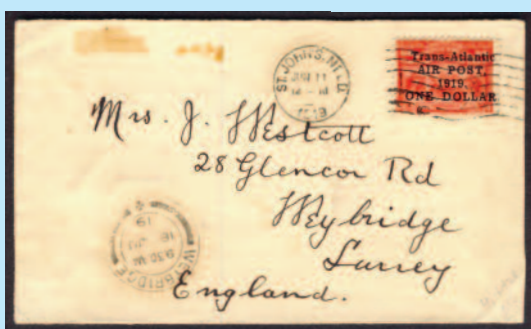 ST. JOHN'S, NFLD
1919
Trans-Atlantic
AIR POST,
1919.
ONE DOLLAR
Mrs. J. Westcott
28 Glencor Rd
Weybridge
Surrey
England.
WEYBRIDGE
9 30 AM
19